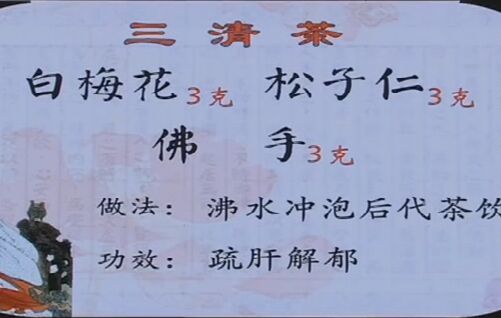 三清茶
白梅花3克 松子仁3克
佛手3克
做法：沸水冲泡后代茶饮
功效：疏肝解郁